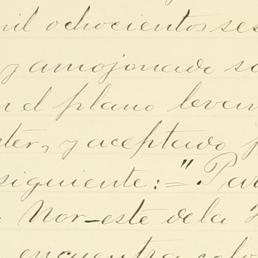 mil ochocientos ses
y amojonado so
n el plano levan
ter, y aceptado p
siguiente:=" Par
Nor-este de la
encuentra colo